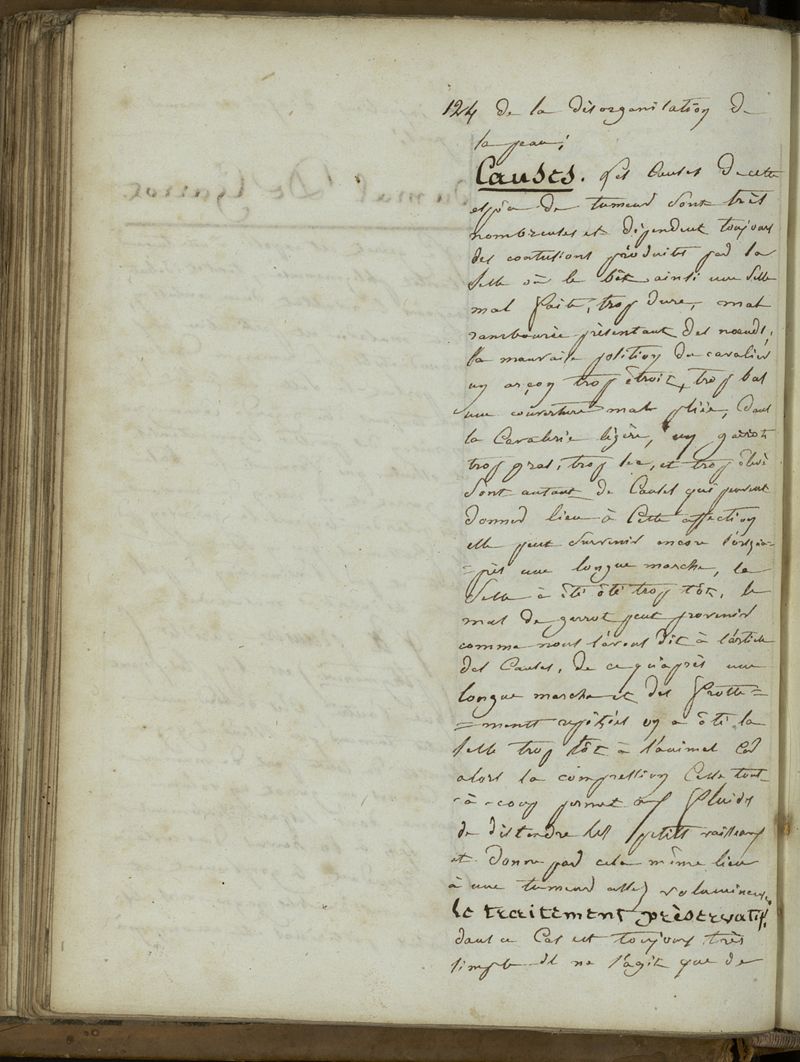 124 de la désorganisation de
la peau;
Causes. Les causes de cette
espèce de tumeur sont très
nombreuses et dépendent toujours
des contusions produits par la
Selle où le bât ainsi une Selle
mal faite, trop dure, mal
rambourée présentant des nœuds,
la mauvaise position du cavalier
un arçon trop étroit, trop bas
une couverture mal pliée, dans
la Cavalerie légère, un garot
trop gras, trop sec, et trop élevé
Sont autant de Causes qui peuvent
donner lieu à Cette affection
elle peut Survenir encore lorsqu'a=
=près une longue marche, la
Selle à été ôté trop tôt, le
mal de garrot peut provenir
comme nous l'avons dit à l'article
des Causes, de ce qu'après une
longue marche et des frotte=
=ments repétées on a ôté la
Selle trop tôt à l'animal car
alors la compression Cesse tout
-à-coup permet aux fluides
de distendre les petits vaisseaux
et donne par cela même lieu
à une tumeur assez volumineuse,
le traitement préservatif,
dans ce Cas est toujours très
Simple il ne s'agit que de